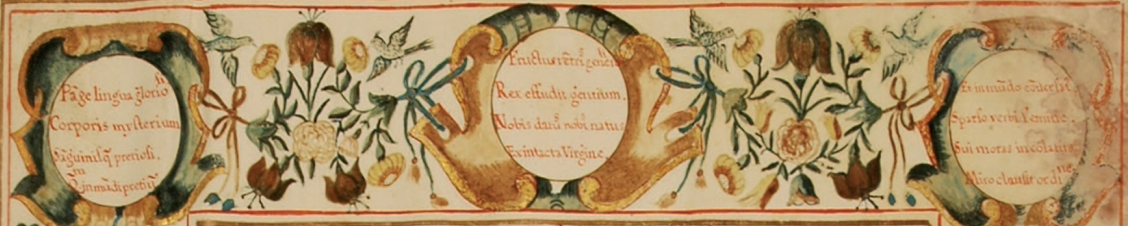 Pãge lingua g̃lorio si
Corporis mysterium
Sãguinisq̃ pretiosi.
Q̃ in mũdi pretiũ
Fructus vẽtrĩ genero
Rex effudit gentium.
Nobis datũ nobĩ natus
Ex intacta Virgine
Et in mũdo cõuersat,
Sparso verbi semine.
Sui moras incolatus
Miro clausit ordi ne